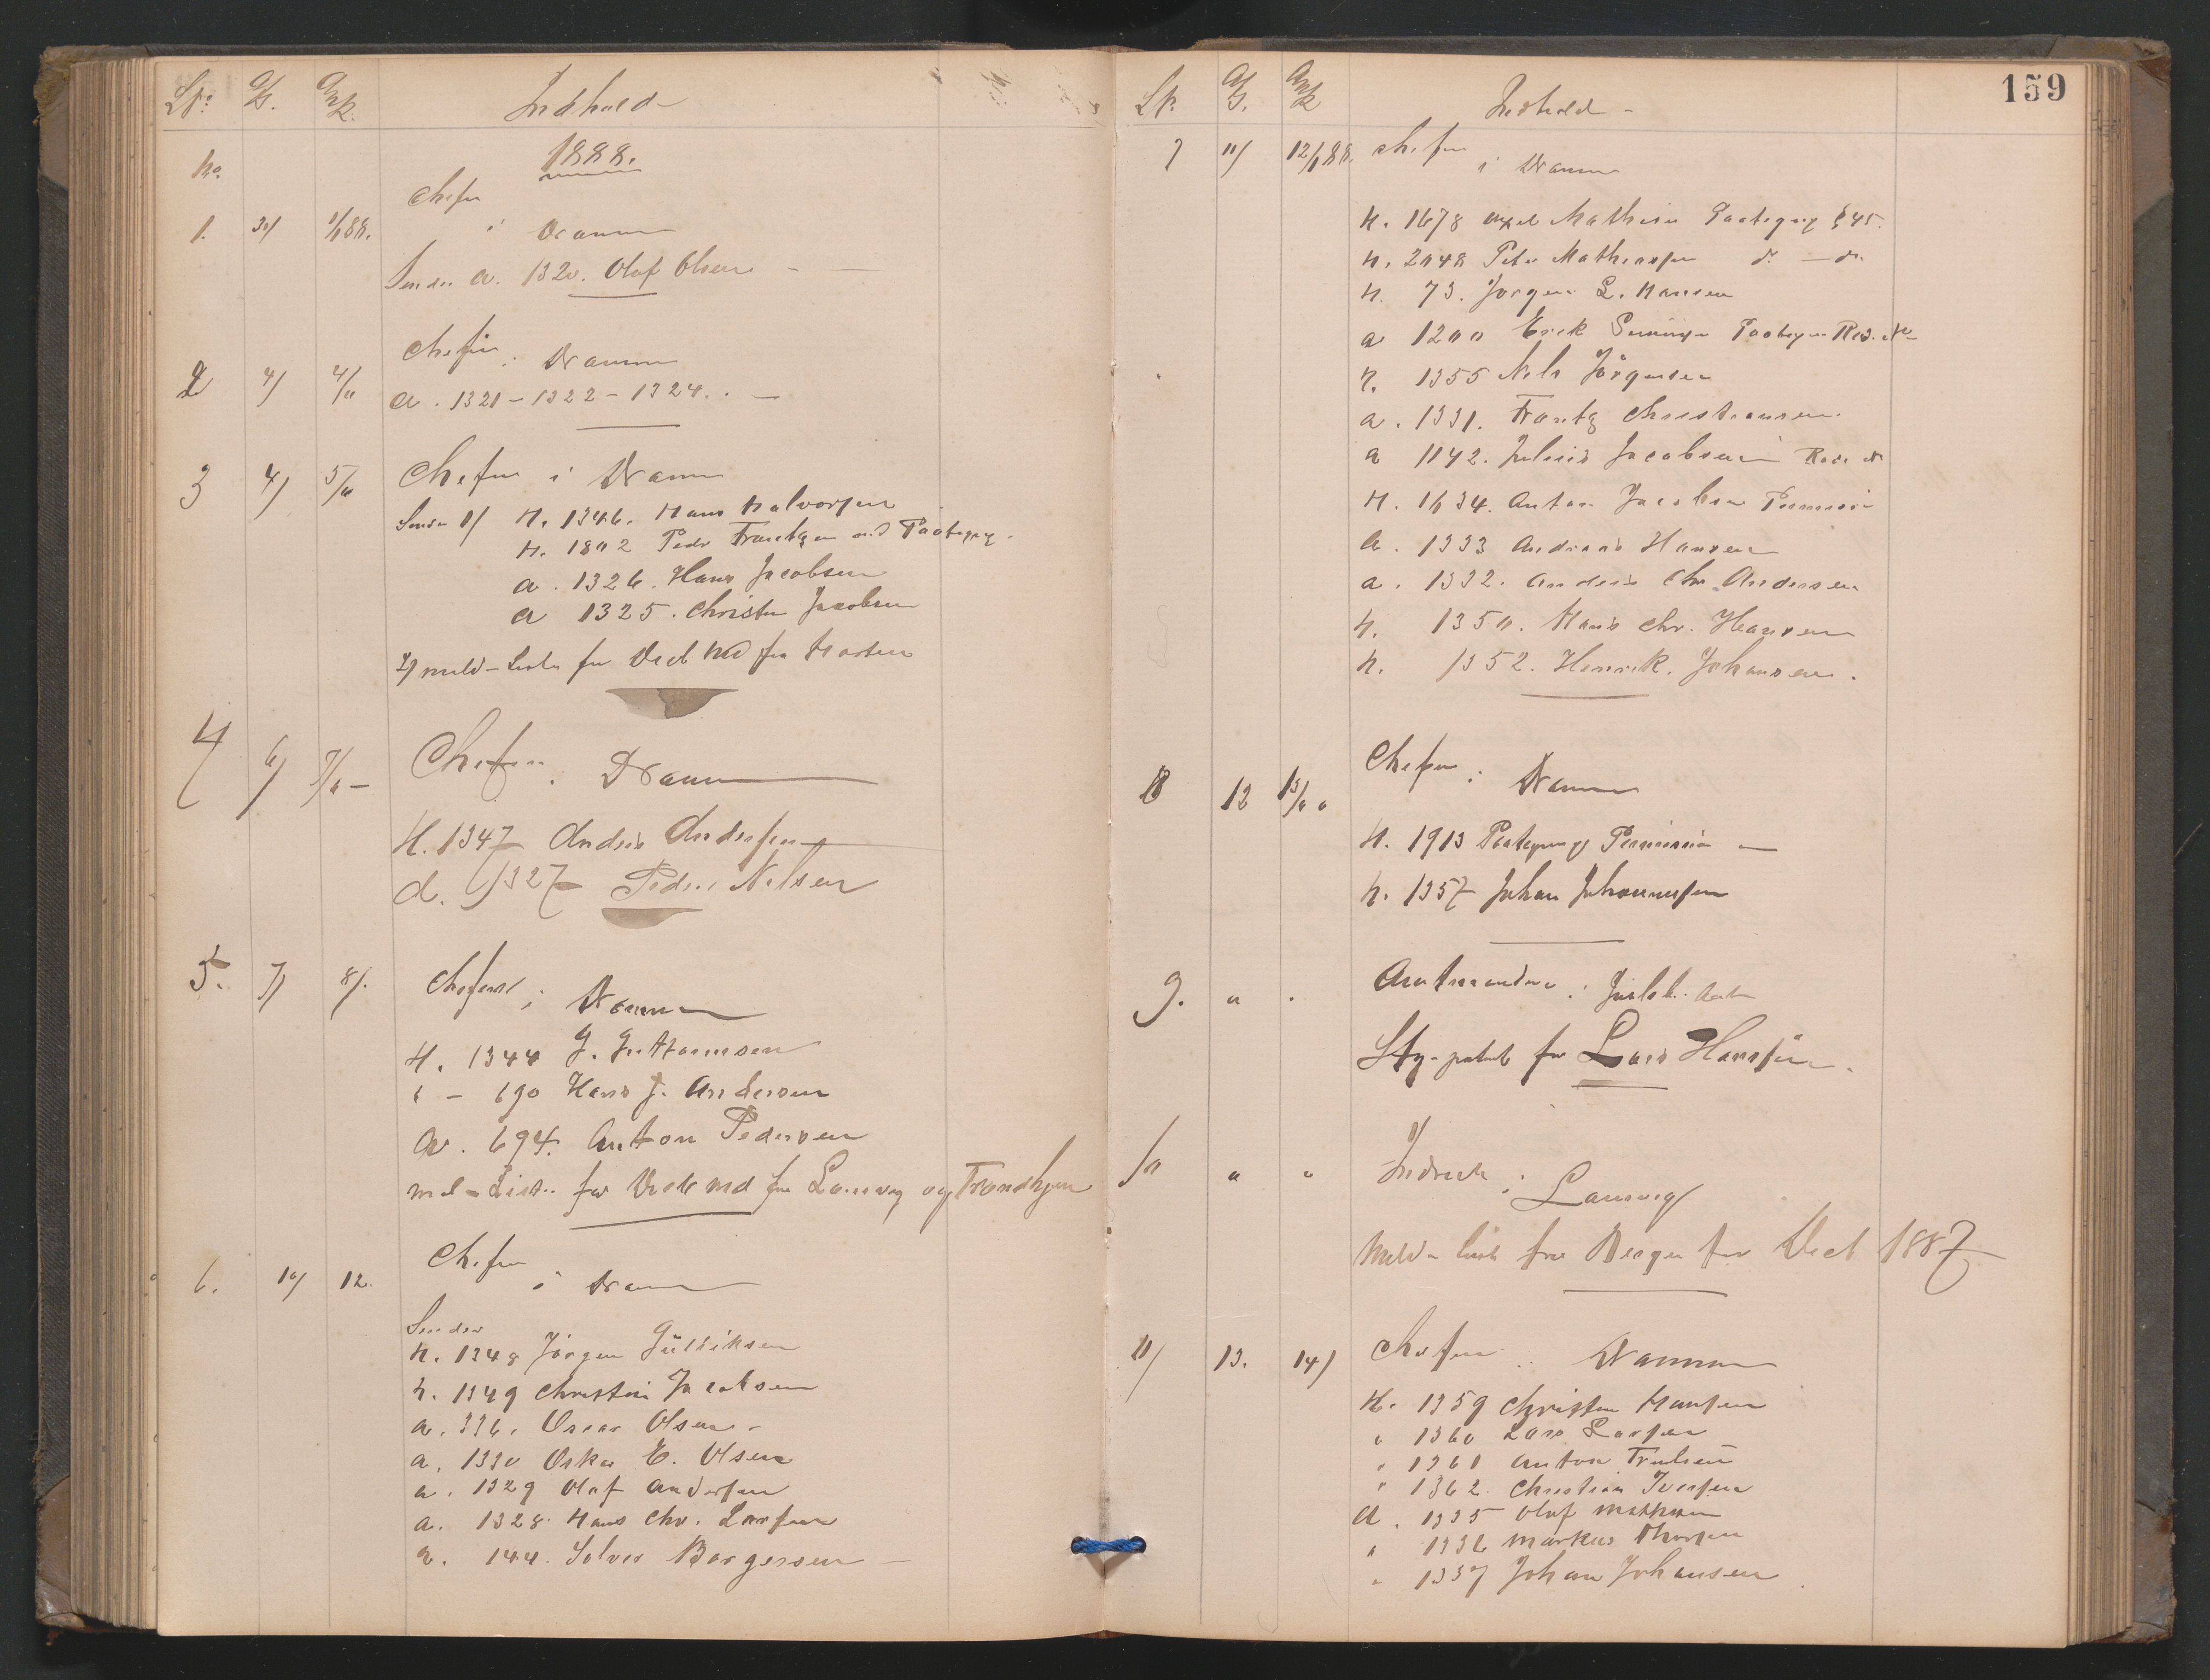 Indhold
1888.
No.
Chefen
1. 1/1 88.
i Dramm
Sender a. 1320. Olaf Olsen
Chefen i Dramm
2 4/
a. 1321 - 1322 - 1324.
3 4/ Chefen i Dramm
Sender 1/ H. 1346. Hans Halvorsen
H. 1802 Peder Frantzen med Paategng.
a. 1326. Hans Jacobsen
a 1325. Christen Jacobsen
2/ meld-Liste for Decb md fra Horten
4 6/ Chefen i Dramm
H. 1347 Anders Andersen
a. 1327 Peder Nilsen
5. 7/ 8/. Chefen i Dramm
H. 1344 J. Guttormsen
" - 690 Hans J. Andersen
a. 694. Anton Pedersen
mel-Liste for Decb md fra Laurvig og Trondhjem
Chefen
6. 10/ 12.
i Dram
Sender
H. 1348 Jörgen Gulliksen
h. 1349 Christian Jacobsen
a. 336. Oscar Olsen
a. 1330 Oskar E. Olsen
a. 1329 Olaf Andersen
a. 1328 Hans Chr. Larsen
a. 144. Solver Borgersen
159
Indhold
7 11/ 12/1 88. Chefen
i Dramm
H. 1678 Axel Mathisen Paategng § 45.
h. 2048 Peter Mathiassen do - do
H. 73. Jørgen L. Hansen
a 1200 Erik
h. 1355 Nels Jörgensen
a. 1331. Frantz Christiansen
a 1142. Julius Jacobsen
H. 1634. Anton Jacobsen Permission
a. 1333 Andreas Hansen
a. 1332. Anders Chr. Andersen
h. 1350. Hans Chr. Hansen
h. 1352. Henrik Johansen.
Chefen i Dramm
8 12
H. 1913 Paategng Permission
h. 1357 Johan Johannessen
9. " . Amtmanden i Jarlsb. Amt
Sty-patent for Lars Hanssen.
10 " " Indrul. i Laurvig
Meld-liste fra Bergen for Decb 1887
11/ 13. 14/ Chefen i Dramm
H. 1359 Christen Hansen
" 1360 Lars Larsen
" 1361 Anton Trulsen
" 1362 Christian Iversen
a. 1335 Olaf Mathisen
" 1336 Markus Thorsen
" 1337 Johan Johansen